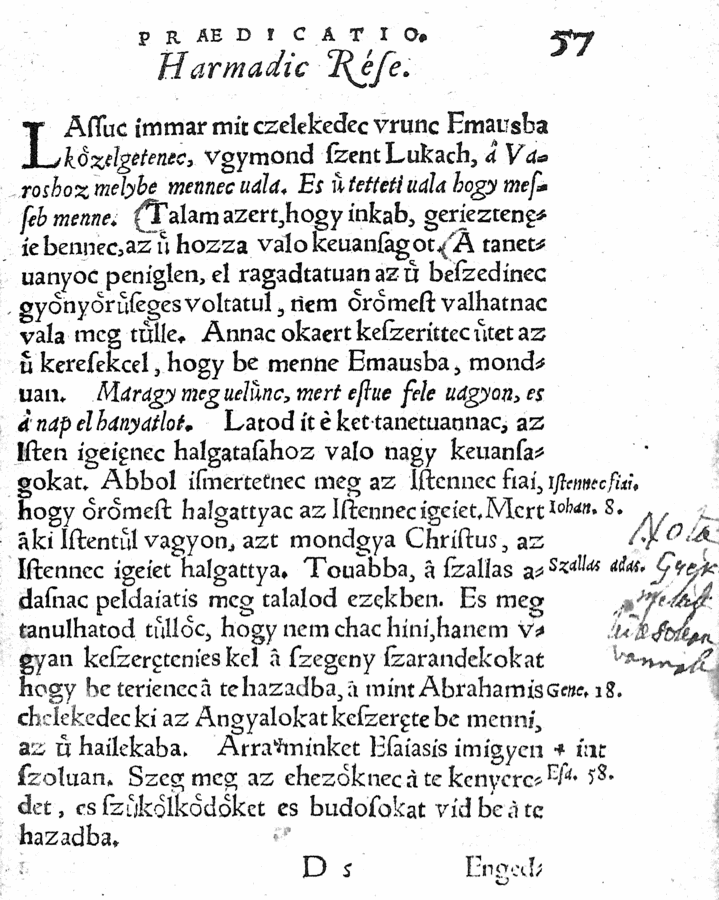 PRÆDICATIO.
57
Harmadic Réſe.
LAſſuc immar mit czelekedec vrunc Emausba
kỏzelgetenec, vgymond ſzent Lukach, â Va-
roshoz melybe mennec uala. Es ủ tetteti uala hogy meſ-
ſeb menne. (Talam azert, hogy inkab, gerieztenę-
ie bennec, az ủ hozza valo keuanſagot.(A tanet-
uanyoc peniglen, el ragadtatuan az ủ beſzedinec
gyỏnyỏrủſeges voltatul, nem ỏrỏmeſt valhatnac
vala meg tủlle. Annac okaert keſzerittec ủtet az
ủ kereſekcel, hogy be menne Emausba, mond-
uan. Maragy meg uelủnc, mert eſtue fele uagyon, es
â nap el hanyatlot. Latod it è ket tanetuannac, az
Iſten igeięnec halgataſahoz valo nagy keuanſa-
gokat. Abbol iſmertetnec meg az Iſtennec fiai,
Iſtennec fiai.
hogy ỏrỏmeſt halgattyac az Iſtennec igeiet. Mert
Iohan. 8.
âki Iſtentủl vagyon, azt mondgya Chriſtus, az
Nota
Iſtennec igeiet halgattya. Touabba, â ſzallas a-
Szallas adas.
daſnac peldaiatis meg talalod ezękben. Es meg
tanulhatod tủllỏc, hogy nem chac hini, hanem v-
gyan keſzerętenies kel â ſzegeny ſzarandekokat
vannak
hogy be terienec â te hazadba, â mint Abrahamis
Gene. 18.
chelekedec ki az Angyalokat keſzeręte be menni,
az ủ hailekaba. Arra minket Eſaiasis imigyen
+ int
ſzoluan. Szeg meg az ehezỏknec â te kenyere-
Eſa. 58.
det, es ſzủkỏlkỏdỏket es budoſokat vid be â te
hazadba.
D 5
Enged-